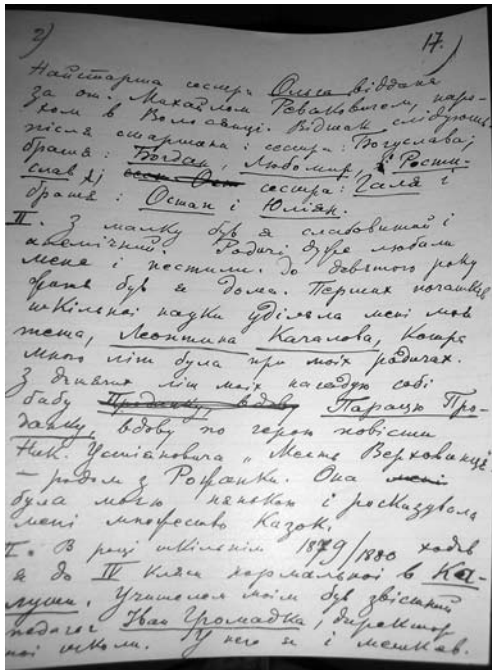 2) 17.)
Найстарша сестра Ольга віддана
за от. Михайлом Реваковичом, паро-
хом в Волосянці. Відтак слідують
після старшини: сестра: Богуслава;
братя: Богдан, Любомир, Рости-
слав; сестра: Галя і
братя: Остап і Юліян.
II. З малку був я слабовитий і
анемічний. Родичі дуже любили
мене і пестили. До девятого року
був я дома. Перших початків
шкільної науки уділяла мені моя
тета, Леонтина Качалова, котра
много літ була при моїх родичах.
З дитячих літ моїх нагадую собі
бабу Продашку, вдову Парацю Про-
данку, вдову по герою повісти
Ник. Устіяновича „Месть Верховинця"
– родом з Рожанки. Она мені
була моєю нянькою і росказувала
мені множество казок.
В році шкільнім 1879/1880 ходив
я до IV кляси нормальної в Ка-
луши. Учителем моїм був звістний
педагог Іван Громадка, директор
тої школи. У него я і мешкав.